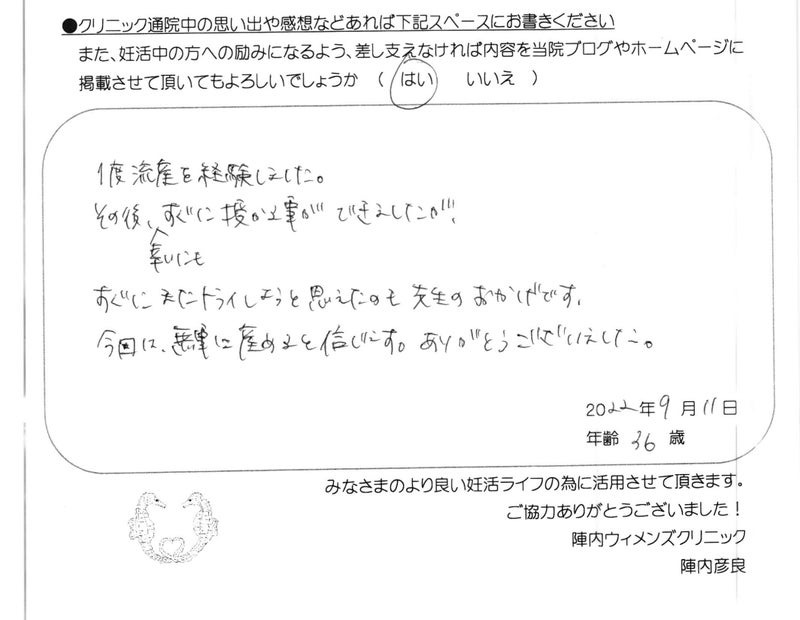 ●クリニック通院中の思い出や感想などあれば下記スペースにお書きください
また、妊活中の方への励みになるよう、差し支えなければ内容を当院ブログやホームページに
掲載させて頂いてもよろしいでしょうか ( はい いいえ )
1度流産を経験しました。
その後、すぐに授かる事ができましたが、
幸いにも
すぐにまたトライしようと思えたのも先生のおかげです。
今回は、無事に産めると信じてます。ありがとうございました。
2022年9月11日
年齢 36 歳
みなさまのより良い妊活ライフの為に活用させて頂きます。
ご協力ありがとうございました！
陣内ウィメンズクリニック
陣内彦良